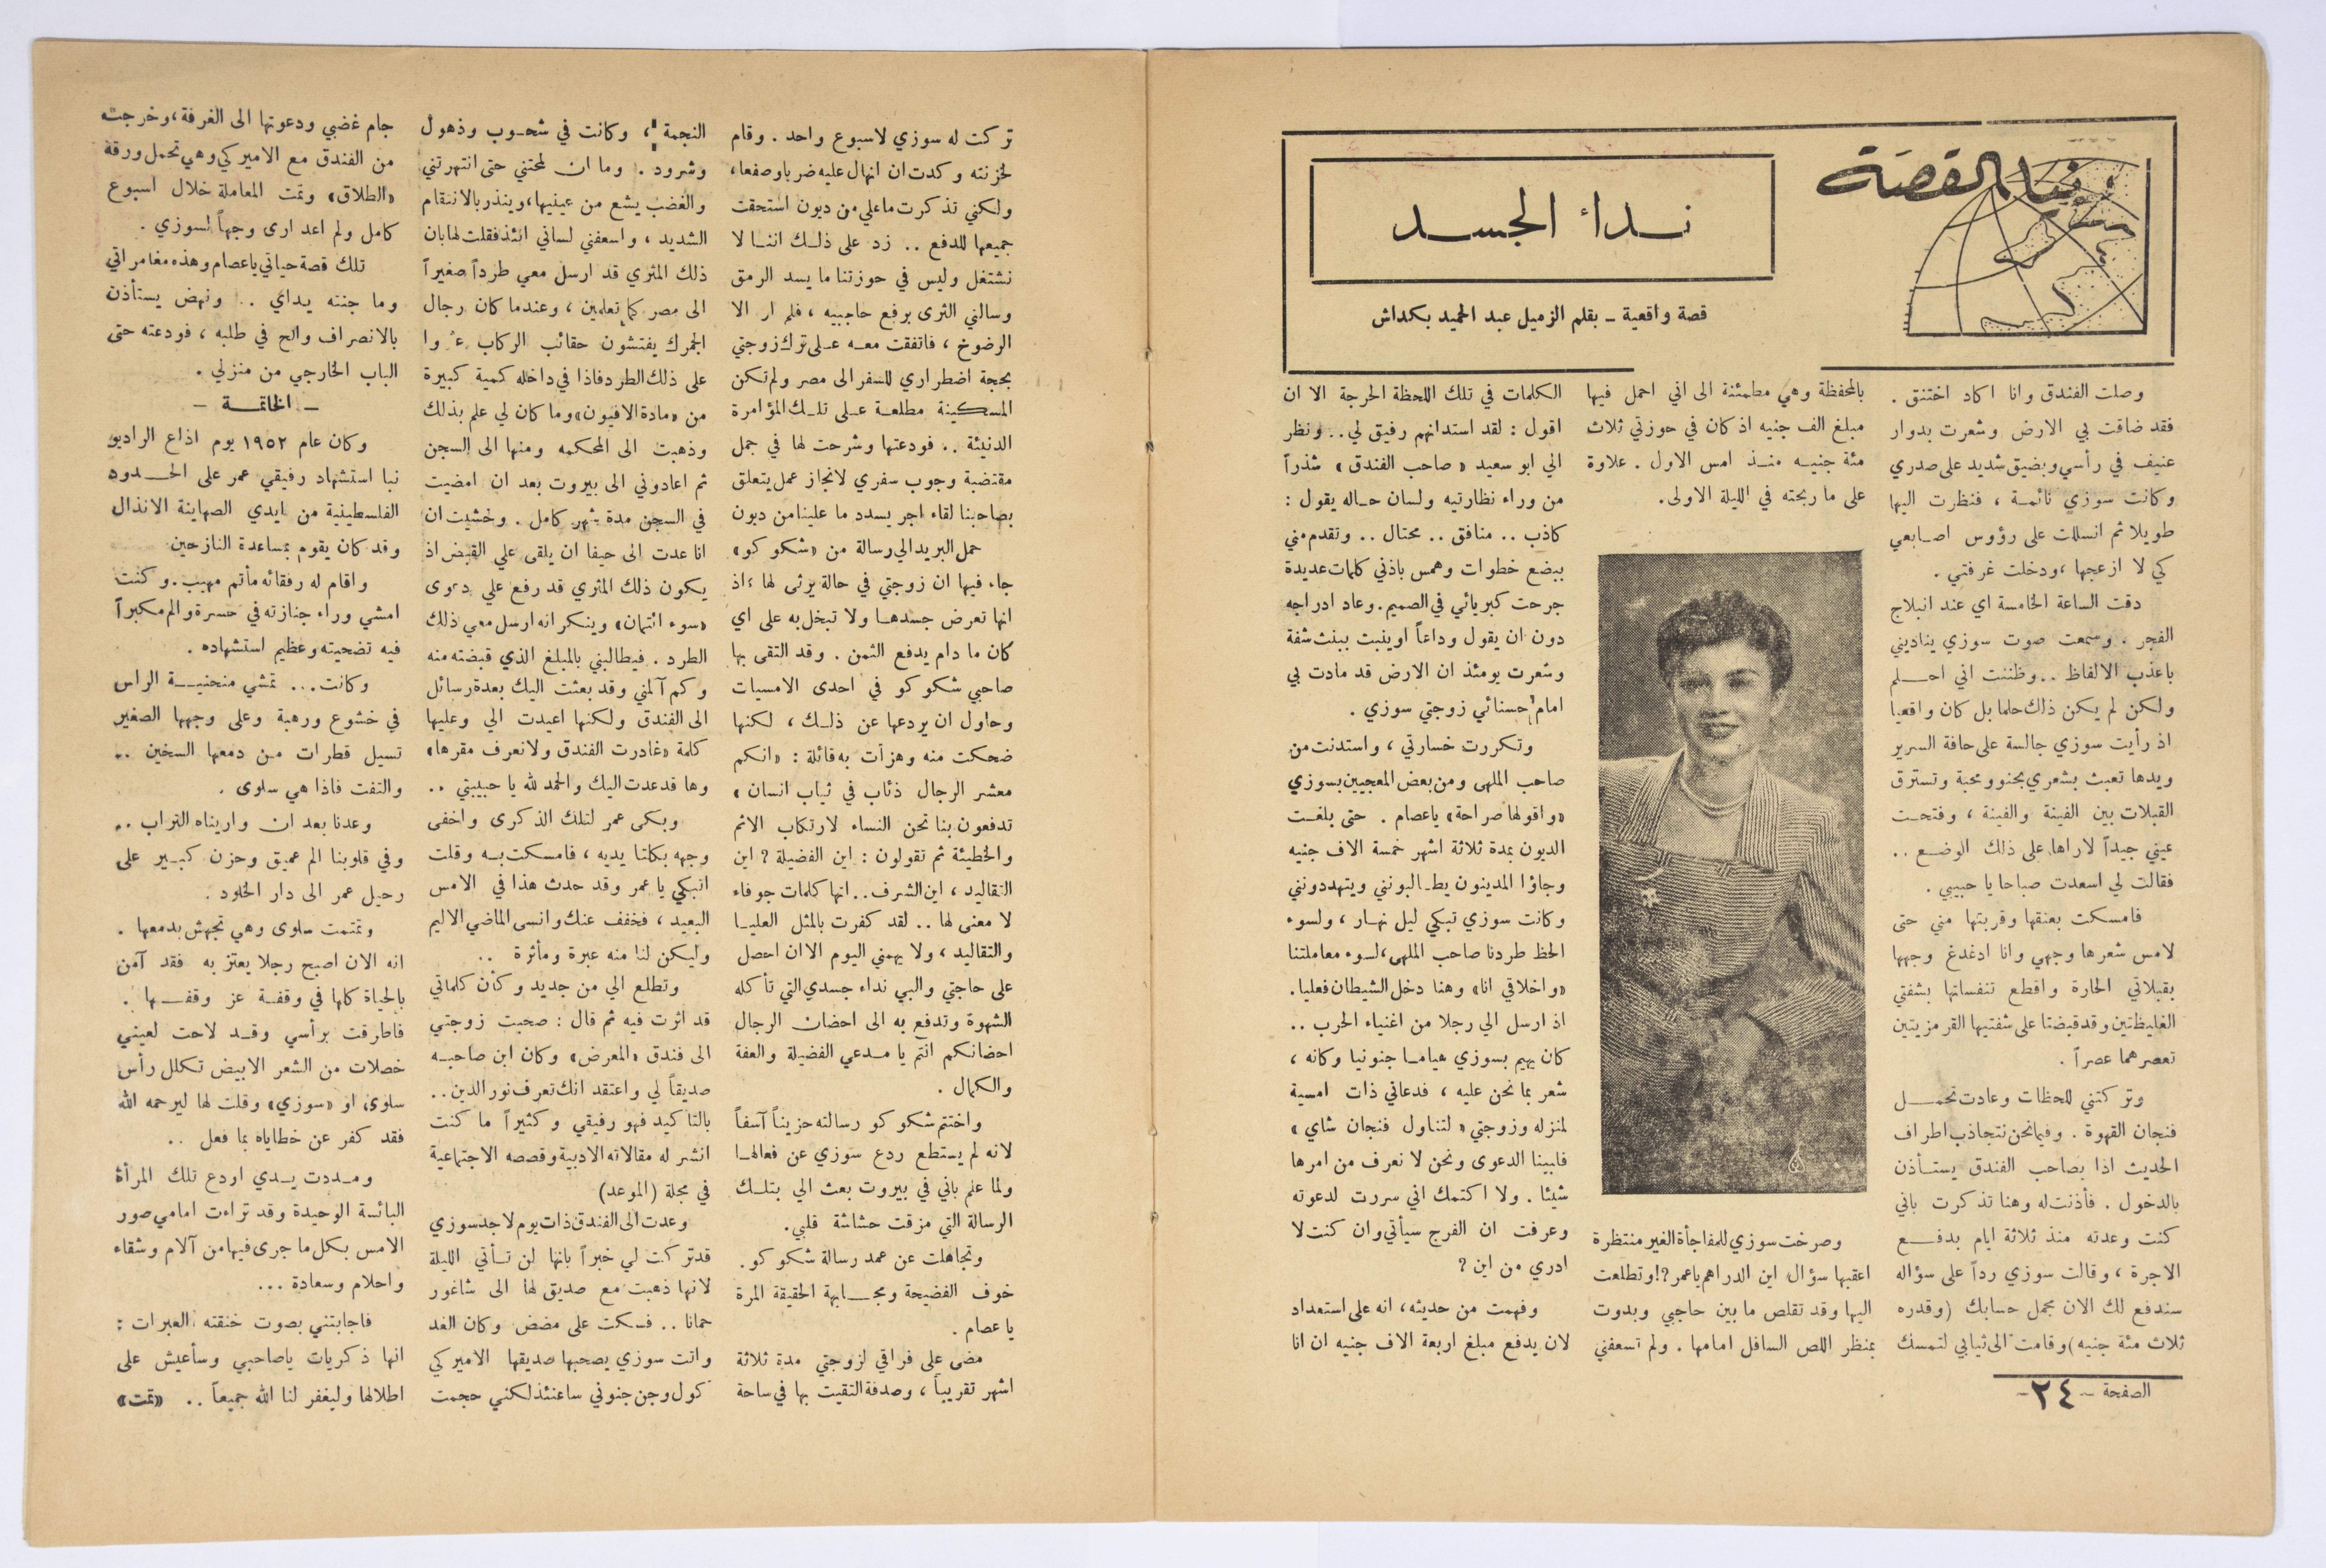 دنيا القصة
نداء الجسد
قصة واقعية ـ بقلم الزميل عبد الحميد بكداش
وصلت الفندق وانا اكاد اختنق .
فقد ضاقت بي الارض وشعرت بدوار
عنيف في رأسي وبضيق شديد على صدري
وكانت سوزي نائمة ، فنظرت اليها
طويلا ثم انسللت على رؤوس اصابعي
كي لا ازعجها ،ودخلت غرفتي .
دقت الساعة الخامسة اي عند انبلاج
الفجر . وسمعت صوت سوزي يناديني
باعذب الالفاظ .. وظننت اني احلم
ولكن لم يكن ذلك حلما بل كان واقعيا
اذ رأيت سوزي جالسة على حافة السرير
ويدها تعبث بشعري بحنو ومحبة وتسترق
القبلات بين الفينة والفينة ، وفتحت
عيني جيداً لاراها على ذلك الوضع ..
فقالت لي اسعدت صباحا يا حبيبي .
فامسكت بعنقها وقربتها مني حتى
لامس شعرها وجهي وانا ادغدغ وجهها
بقبلاتي الحارة واقطع تنفساتها بشفتي
الغليظتين وقد قبضتا على شفتيها القرمزيتين
تعصرهما عصراً .
وتركتني للحظات وعادت تحمل
فنجان القهوة . وفيما نحن نتجاذب اطراف
الحديث اذا بصاحب الفندق يستأذن
بالدخول . فأذنت له وهنا تذكرت باني
كنت وعدته منذ ثلاثة ايام بدفع
الاجرة ، وقالت سوزي رداً على سؤاله
سندفع لك الان مجمل حسابك (وقدره
ثلاث مئة جنيه) وقامت الى ثيابي لتمسك
بالمحفظة وهي مطمئنة الى اني احمل فيها
مبلغ الف جنيه اذ كان في حوزتي ثلاث
مئة جنيه منذ امس الاول . علاوة
على ما ربحته في الليلة الاولى.
وصرخت سوزي للمفاجأة الغير منتظرة
اعقبها سؤال اين الدراهم يا عمر ?!وتطلعت
اليها وقد تقلص ما بين حاجبي وبدوت
بمنظر اللص السافل امامها . ولم تسعفني
الكلمات في تلك اللحظة الحرجة الا ان
اقول : لقد استدانهم رفيق لي.. ونظر
الي ابو سعيد « صاحب الفندق » شذراً
من وراء نظارتيه ولسان حاله يقول :
كاذب .. منافق .. محتال .. وتقدم مني
ببضع خطوات وهمس باذني كلمات عديدة
جرحت كبريائي في الصميم. وعاد ادراجه
دون ان يقول وداعاً او ينبت ببنت شفة
وشعرت يومئذ ان الارض قد مادت بي
امام حسنائي زوجتي سوزي .
وتكررت خسارتي ، واستدنت من
صاحب الملهى ومن بعض المعجبين بسوزي
«واقولها صراحة» يا عصام . حتى بلغت
الديون بمدة ثلاثة اشهر خمسة الاف جنيه
وجاؤا المدينون يطالبونني ويتهددونني
وكانت سوزي تبكي ليل نهار ، ولسوء
الحظ طردنا صاحب الملهى،لسوء معاملتنا
«واخلاقي انا» وهنا دخل الشيطان فعليا.
اذ ارسل الي رجلا من اغنياء الحرب ..
كان يهيم بسوزي هياما جنونيا وكانه ،
شعر بما نحن عليه ، فدعاني ذات امسية
لمنزله وزوجتي « لتناول فنجان شاي »
فلبينا الدعوى ونحن لا نعرف من امرها
شيئا . ولا اكتمك اني سررت لدعوته
وعرفت ان الفرج سيأتي وان كنت لا
ادري من اين ?
وفهمت من حديثه ، انه على استعداد
لان يدفع مبلغ اربعة الاف جنيه ان انا
الصفحة ـ ٢٤ـ
تركت له سوزي لاسبوع واحد . وقام
لخزنته وكدت ان انهال عليه ضربا وصفعا،
ولكني تذكرت ما علي من ديون استحقت
جميعها للدفع .. زد على ذلك اننا لا
نشتغل وليس في حوزتنا ما يسد الرمق
وسالني الثرى برفع حاجبيه ، فلم ار الا
الرضوخ ، فاتفقت معه على ترك زوجتي
بحجة اضطراري للسفر الى مصر ولم تكن
المسكينة مطلعة على تلك المؤامرة
الدنيئة .. فودعتها وشرحت لها في جمل
مقتضبة وجوب سفري لانجاز عمل يتعلق
بصاحبنا لقاء اجر يسدد ما علينا من ديون
حمل البريد الي رسالة من «شكوكو»
جاء فيها ان زوجتي في حالة يرثى لها ؛اذ
انها تعرض جسدها ولا تبخل به على اي
كان ما دام يدفع الثمن . وقد التقى بها
صاحبي شكوكو في احدى الامسيات
وحاول ان يردعها عن ذلك ، لكنها
ضحكت منه وهزأت به قائلة : «انكم
معشر الرجال ذئاب في ثياب انسان »
تدفعون بنا نحن النساء لارتكاب الاثم
والخطيئة ثم تقولون : اين الفضيلة ? اين
التقاليد ، اين الشرف.. انها كلمات جوفاء
لا معنى لها .. لقد كفرت بالمثل العليا
والتقاليد ، ولا يهمني اليوم الا ان احصل
على حاجتي والبي نداء جسدي التي تأكله
الشهوة وتدفع به الى احضان الرجال
احضانكم انتم يا مدعي الفضيلة والعفة
والكمال .
واختتم شكوكو رسالته حزيناً آسفاً
لانه لم يستطع ردع سوزي عن فعالها
ولما علم باني في بيروت بعث الي بتلك
الرسالة التي مزقت حشاشة قلبي.
وتجاهلت عن عمد رسالة شكوكو.
خوف الفضيحة ومجابهة الحقيقة المرة
يا عصام .
مضى على فراقي لزوجتي مدة ثلاثة
اشهر تقريباً ، وصدفة التقيت بها في ساحة
النجمة ، وكانت في شحوب وذهول
وشرود . وما ان لمحتني حتى انتهرتني
والغضب يشع من عينيها،وينذر بالانتقام
الشديد ، واسعفني لساني انئذ فقلت لها بان
ذلك المثري قد ارسل معي طرداً صغيراً
الى مصر كما تعلمين ، وعندما كان رجال
الجمرك يفتشون حقائب الركاب عثروا
على ذلك الطرد فاذا في داخله كمية كبيرة
من «مادة الافيون» وما كان لي علم بذلك
وذهبت الى المحكمه ومنها الى السجن
ثم اعادوني الى بيروت بعد ان امضيت
في السجن مدة شهر كامل . وخشيت ان
انا عدت الى حيفا ان يلقى علي القبض اذ
يكون ذلك المثري قد رفع علي دعوى
«سوء ائتمان» وينكر انه ارسل معي ذلك
الطرد . فيطالبني بالمبلغ الذي قبضته منه
وكم آلمني وقد بعثت اليك بعدة رسائل
الى الفندق ولكنها اعيدت الي وعليها
كلمة «غادرت الفندق ولا نعرف مقرها»
وها قد عدت اليك والحمد لله يا حبيبتي ..
وبكى عمر لتلك الذكرى واخفى
وجهه بكلتا يديه ، فامسكت به وقلت
اتبكي يا عمر وقد حدث هذا في الامس
البعيد ، فخفف عنك وانسى الماضي الاليم
وليكن لنا منه عبرة ومأثرة ..
وتطلع الي من جديد وكأن كلماتي
قد اثرت فيه ثم قال : صحبت زوجتي
الى فندق «المعرض» وكان ابن صاحبه
صديقاً لي واعتقد انك تعرف نور الدين..
بالتاكيد فهو رفيقي وكثيراً ما كنت
انشر له مقالاته الادبية وقصصه الاجتماعية
في مجلة (الموعد)
وعدت الى الفندق ذات يوم لاجد سوزي
قد تركت لي خبراً بانها لن تأتي الليلة
لانها ذهبت مع صديق لها الى شاغور
حمانا .. فسكت على مضض وكان الغد
واتت سوزي يصحبها صديقها الاميركي
كول وجن جنوني ساعتئذ لكني حجمت
جام غضبي ودعوتها الى الغرفة ،وخرجت
من الفندق مع الاميركي وهي تحمل ورقة
«الطلاق» وتمت المعاملة خلال اسبوع
كامل ولم اعد ارى وجهاً لسوزي .
تلك قصة حياتي يا عصام وهذه مغامراتي
وما جنته يداي .. ونهض يستأذن
بالانصراف والح في طلبه ، فودعته حتى
الباب الخارجي من منزلي .
ـ الخاتمة ـ
وكان عام ١٩٥٢ يوم اذاع الراديو
نبا استشهاد رفيقي عمر على الحدود
الفلسطينية من ايدي الصهاينة الانذال
وقد كان يقوم بمساعدة النازحين
واقام له رفقائه مأتم مهيب. وكنت
امشي وراء جنازته في حسرة والم مكبراً
فيه تضحيته وعظيم استشهاده .
وكانت... تمشي منحنية الراس
في خشوع ورهبة وعلى وجهها الصغير
تسيل قطرات من دمعها السخين ..
والتفت فاذا هي سلوى .
وعدنا بعد ان واريناه التراب ..
وفي قلوبنا الم عميق وحزن كبير على
رحيل عمر الى دار الخلود .
وتمتمت سلوى وهي تجهش بدمعها .
انه الان اصبح رجلا يعتز به فقد آمن
بالحياة كلها في وقفة عز وقفها .
فاطرقت برأسي وقد لاحت لعيني
خصلات من الشعر الابيض تكلل رأس
سلوى او «سوزي» وقلت لها ليرحمه الله
فقد كفر عن خطاياه بما فعل ..
ومددت يدي اردع تلك المرأة
البائسة الوحيدة وقد تراءت امامي صور
الامس بكل ما جرى فيها من آلام وشقاء
واحلام وسعادة ...
فاجابتني بصوت خنقته العبرات :
انها ذكريات يا صاحبي وسأعيش على
اطلالها وليغفر لنا الله جميعاً .. «تمت»